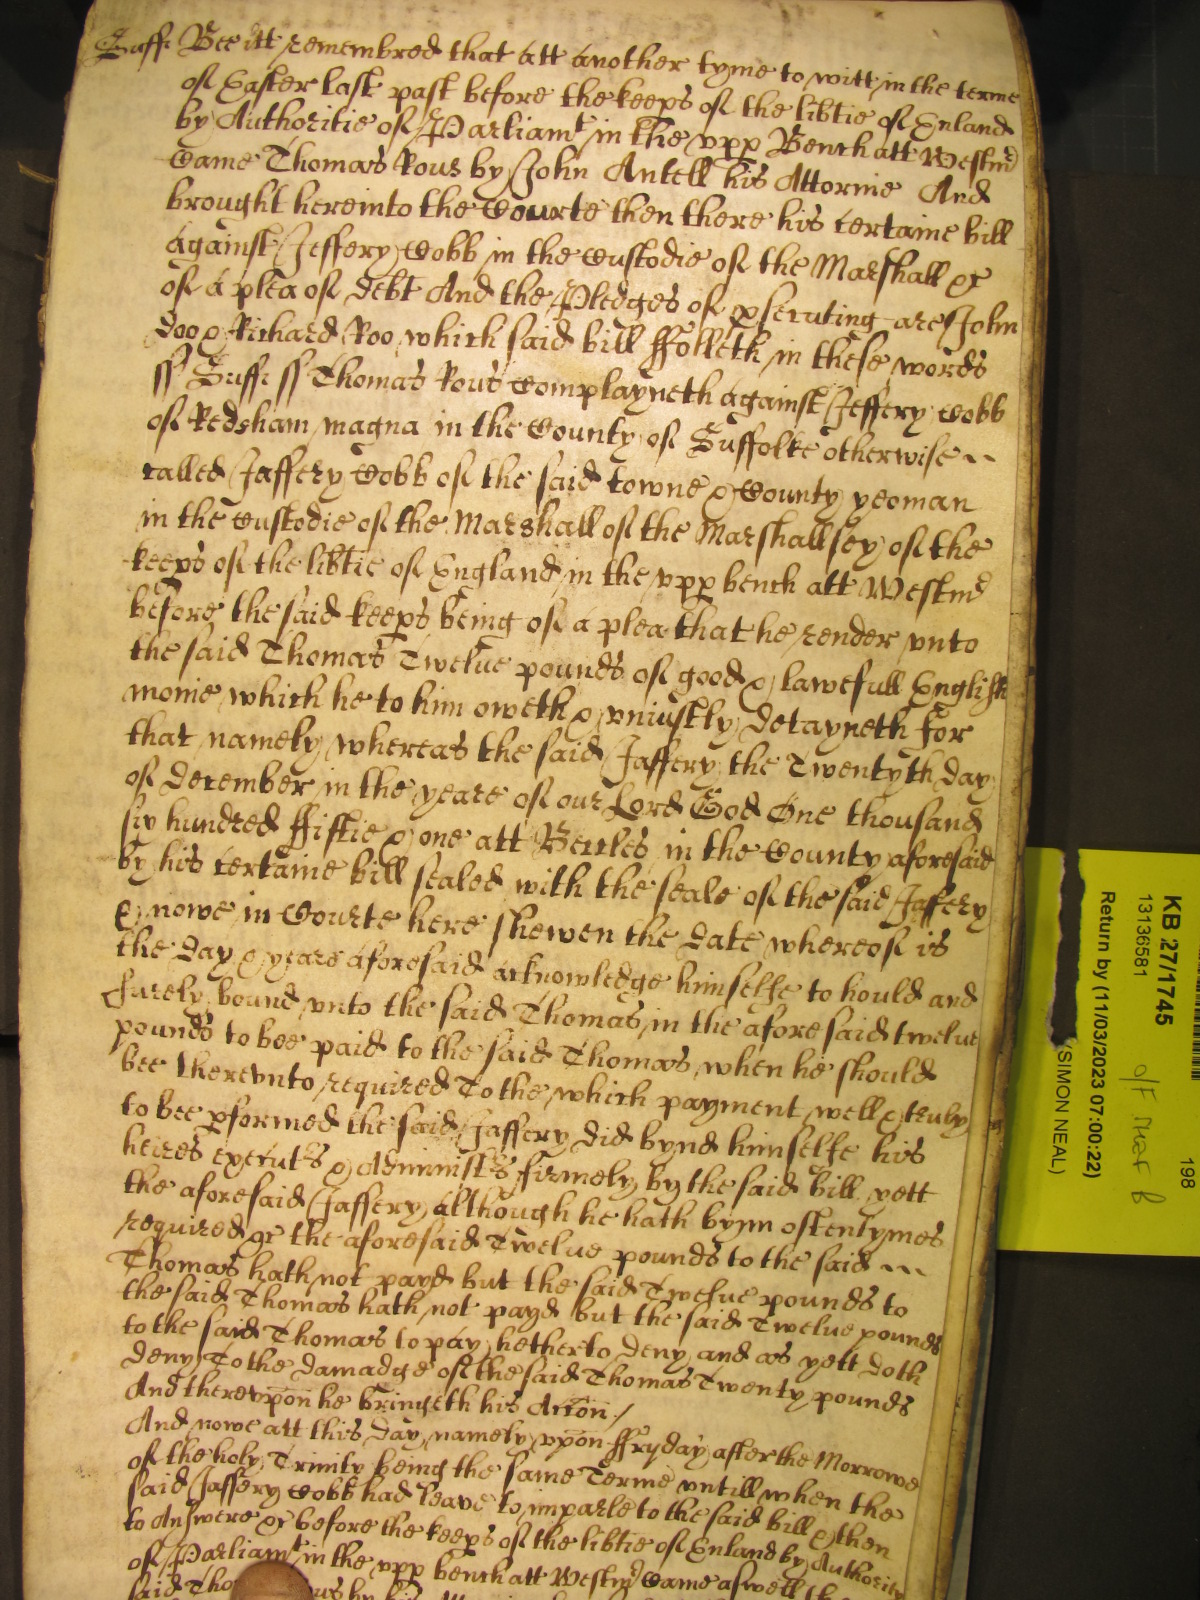 Suff Bee itt remembred that att another tyme to witt in the terme
of Easter last past before the keeps of the libtie of Enland
by Authoritie of Parliamt in the vpp Bench att Westmr
Came Thomas Rous by John Antell his Attornie And
brought here into the Courte then there his certaine bill
against Jeffery Cobb in the Custodie of the Marshall &c
of a plea of debt And the Pledges of pseruting are John
Doo & Richard Roo which said bill ffolleth in these words
ss Suff ss Thomas Rous Complayneth against Jeffery Cobb
of Redsham magna in the County of Suffolke otherwise
called Jaffery Cobb of the said towne & County yeoman
in the Custodie of the Marshall of the Marshallsey of the
keeps of the libtie of England in the vpp bench att Westmr
before the said keeps being of a plea that he render vnto
the said Thomas Twelue pounds of good & lawefull English
monie which he to him oweth & vniustly detayneth for
that namely whereas the said Jaffery the Twentyth day
of December in the yeare of our Lord God One thousand
six hundred ffiftie & one att Beccles in the County aforesaid
by his certaine bill sealed with the seale of the said Jaffery
& nowe in Courte here shewen the date whereof is
the day & yeare aforesaid acknowledge himselfe to hould and
furely bound vnto the said Thomas in the afore said twelue
pounds to bee paid to the said Thomas when he should
bee therevnto required To the which payment well & truly
to bee pformed the said Jaffery did bynd himselfe his
heires executs & Administs firmely by the said bill yett
the aforesaid Jaffery although he hath bynn oftentymes
required &c the aforesaid Twelue pounds to the said
Thomas hath not payd but the said Twelue pounds to
the said Thomas hath not payd but the said Twelue pounds
to the said Thomas to pay hetherto deny and as yett doth
deny To the damadge of the said Thomas Twenty pounds
And therevpon he bringeth his Accon /
And nowe att this day namely vpon ffryday after the Morrowe
of the holy Trinity being the same Terme vntill when the
said Jaffery Cobb had leave to imparle to the said bill & then
to Answere &c before the keeps of the libtie of Enland by Authoritie
of Parliamt in the vpp bench att Westmr Came aswell the
said Tho
KB 27/1745
13136581
Return by (11/03/2023 07:00:22)
(SIMON NEAL)
198